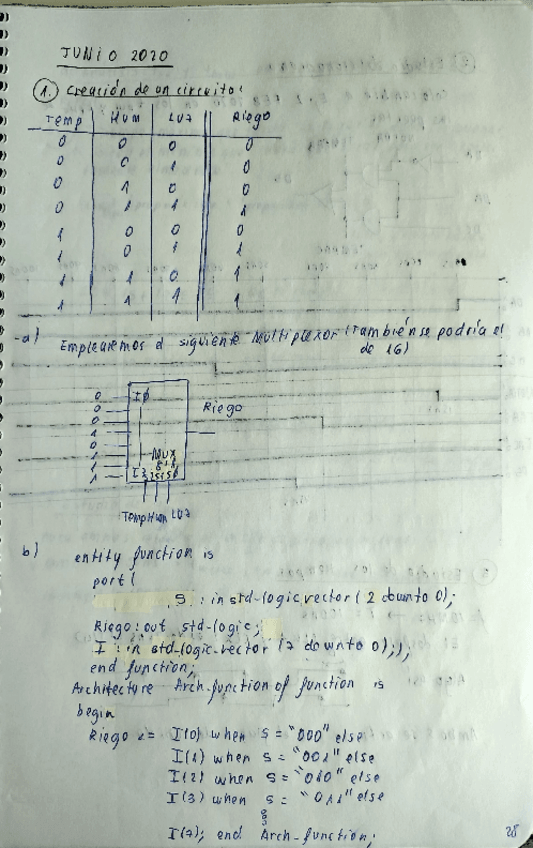 JUNIO 2020
1. Creación de un circuito:
Temp Hum Luz Riego
0 0 0 0
0 0 1 0
0 1 0 0
0 1 1 1
1 0 0 0
1 0 1 1
1 1 0 1
1 1 1 1
a) Emplearemos el siguiente Multiplexor (También se podría el
de 16)
0
0
0
1
0
1
1
1
I0
I7
MUX
8:1
Riego
Temp Hum Luz
b)
entity function is
port(
S : in std-logic vector (2 downto 0);
Riego: out std-logic;
I : in std-logic-vector (7 downto 0););
end function;
Architecture Arch-function of function is
begin
Riego <= I(0) when s = "000" else
I(1) when s = "001" else
I(2) when s = "010" else
I(3) when s = "011" else
I(7); end Arch-function;
28